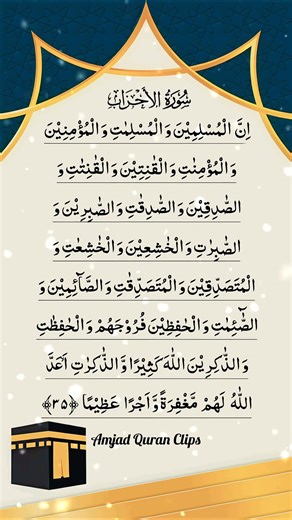 سُوْرَةُ الْاَحْزَاب
اِنَّ الْمُسْلِمِیْنَ وَالْمُسْلِمٰتِ وَالْمُؤْمِنِیْنَ
وَالْمُؤْمِنٰتِ وَالْقٰنِتِیْنَ وَالْقٰنِتٰتِ وَ
الصّٰدِقِیْنَ وَالصّٰدِقٰتِ وَالصّٰبِرِیْنَ وَ
الصّٰبِرٰتِ وَالْخٰشِعِیْنَ وَالْخٰشِعٰتِ وَ
الْمُتَصَدِّقِیْنَ وَالْمُتَصَدِّقٰتِ وَالصَّآئِمِیْنَ وَ
الصّٰٓئِمٰتِ وَالْحٰفِظِیْنَ فُرُوْجَهُمْ وَالْحٰفِظٰتِ
وَالذّٰكِرِیْنَ اللّٰهَ كَثِیْرًا وَّالذّٰكِرٰتِ اَعَدَّ
اللّٰهُ لَهُمْ مَّغْفِرَةً وَّاَجْرًا عَظِیْمًا ﴿۳۵﴾
Amjad Quran Clips